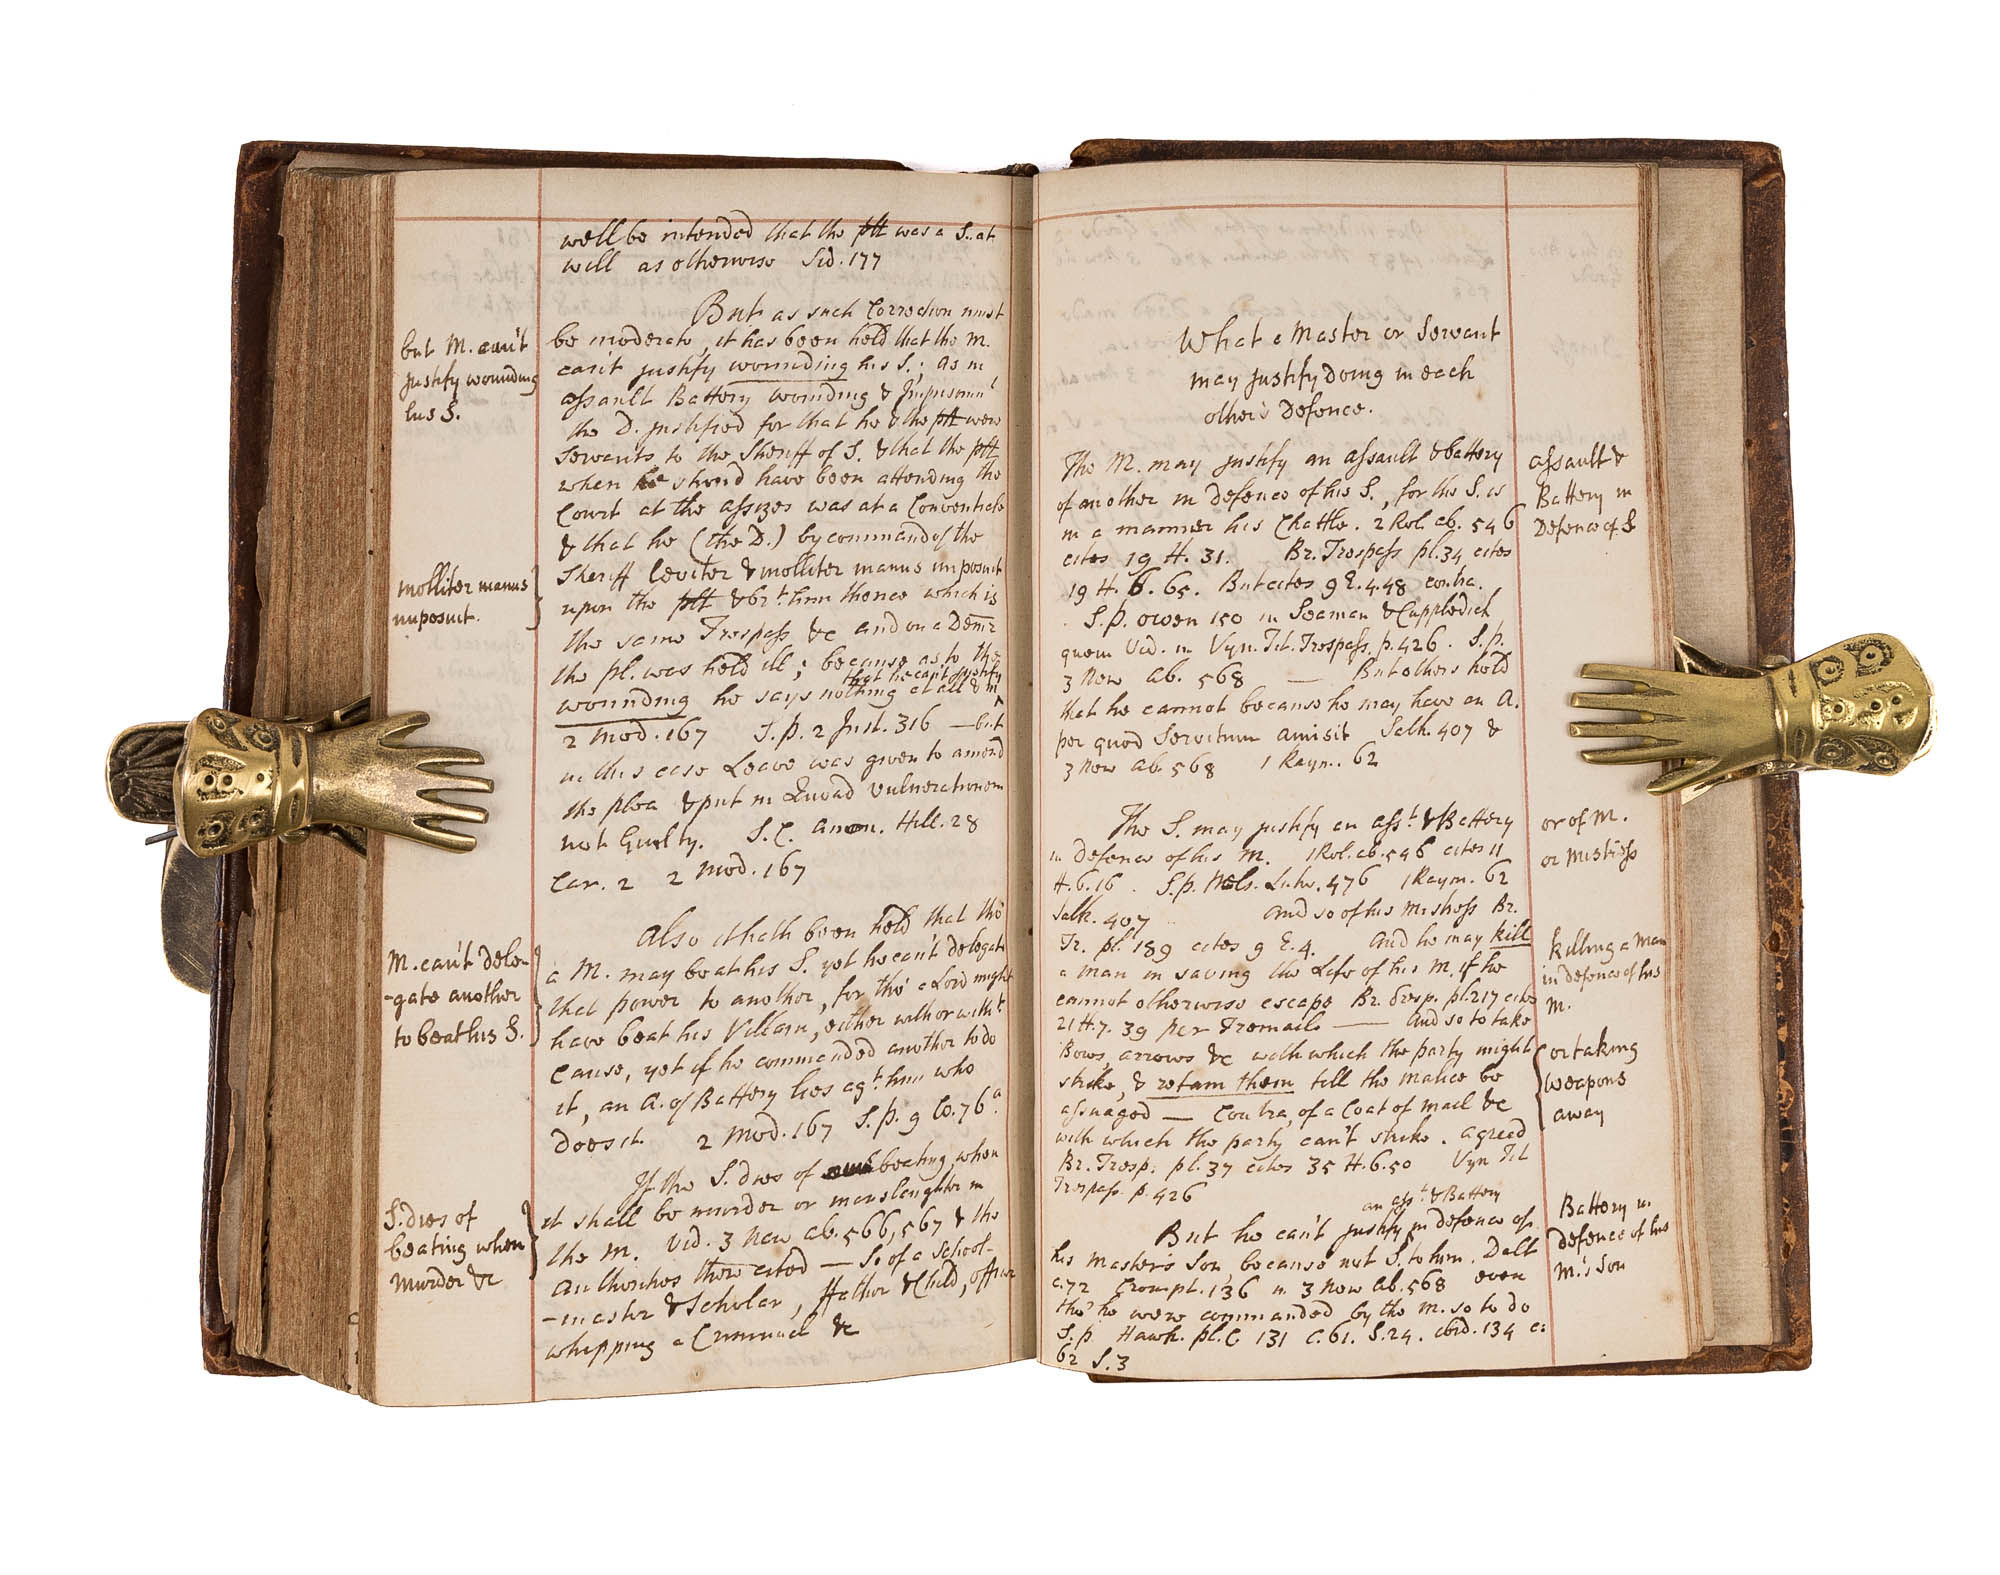 well be intended that the plt was a S. at
will as otherwise Sid. 177
But as such Correction must
be moderate, it has been held that the M.
can't justify wounding his S.; As in
assault Battery wounding & Imprisonmt
the D. justified for that he & the plt were
Servants to the Sheriff of S. & that the plt
when he should have been attending the
Court at the assizes was at a Conventicle
& that he (the D.) by command of the
Sheriff leviter & molliter manus imposuit
upon the plt & bt. him thence which is
the same Trespass &c and on a Demr
the pl. was held ill; because as to the
that he can't justify
wounding he says nothing at all & in
2 Mod. 167 S.p. 2 Inst. 316 — but
in this case Leave was given to amend
the plea & put in Quoad vulnerationem
not Guilty. S.C. anon. Hill. 28
Car. 2 2 Mod. 167
Also it hath been held that tho'
a M. may beat his S. yet he can't delegate
that power to another, for tho' a Lord might
have beat his Villain, either with or witht.
Cause, yet if he commanded another to do
it, an A. of Battery lies agt. him who
does it. 2 Mod. 167 S.p. 9 Co. 76 a.
If the S. dies of beating, when
it shall be murder or manslaughter in
the M. Vid. 3 New Ab. 566, 567 & the
authorities there cited — So of a School-
-master & Scholar, ffather & Child, officer
whipping a Criminal &c
but M. can't
justify wounding
his S.
molliter manus
imposuit.
M. can't dele-
-gate another
to beat his S.
S. dies of
beating when
murder &c
What a Master or Servant
may justify doing in each
other's Defence.
The M. may justify an assault & battery
of another in Defence of his S., for the S. is
in a manner his Chattle. 2 Rol. ab. 546
cites 19 H. 31. Br. Trespass pl. 34 cites
19 H. 6. 65. But cites 9 E. 4. 48 contra.
S.p. Owen 150 in Seaman & Cuppledick
quem Vid. in Vyn. Tit. Trespass. p. 426. S.p.
3 New Ab. 568 — But others hold
that he cannot because he may have an A.
per quod Servitium amisit Salk. 407 &
3 New Ab. 568 1 Raym. 62
The S. may justify an asst. & Battery
in Defence of his M. 1 Rol. ab. 546 cites 11
H. 6. 16. S.p. Nels. Lutw. 476 1 Raym. 62
Salk. 407 and so of his Mistress Br.
Tr. pl. 189 cites 9 E. 4. And he may kill
a man in saving the Life of his M. if he
cannot otherwise escape Br. Tresp. pl. 217 cites
21 H. 7. 39 per Tremaile — And so to take
Bows, arrows &c with which the party might
strike, & retain them till the malice be
assuaged — Contra, of a Coat of Mail &c
with which the party can't strike. agreed
Br. Tresp. pl. 37 cites 35 H. 6. 50 Vyn Tit
Trespass. p. 426
an asst. & Battery
But he can't justify in defence of
his master's Son, because not S. to him. Dalt
c. 72 Crompt. 136 in 3 New Ab. 568 even
tho' he were commanded by the M. so to do
S.p. Hawk. pl. C. 131 C. 61. S. 24. ibid. 134 c.
62 S. 3
assault &
Battery in
Defence of S.
or of M.
or Mistress
killing a man
in defence of his
M.
or taking
weapons
away
Battery in
defence of his
M.'s Son